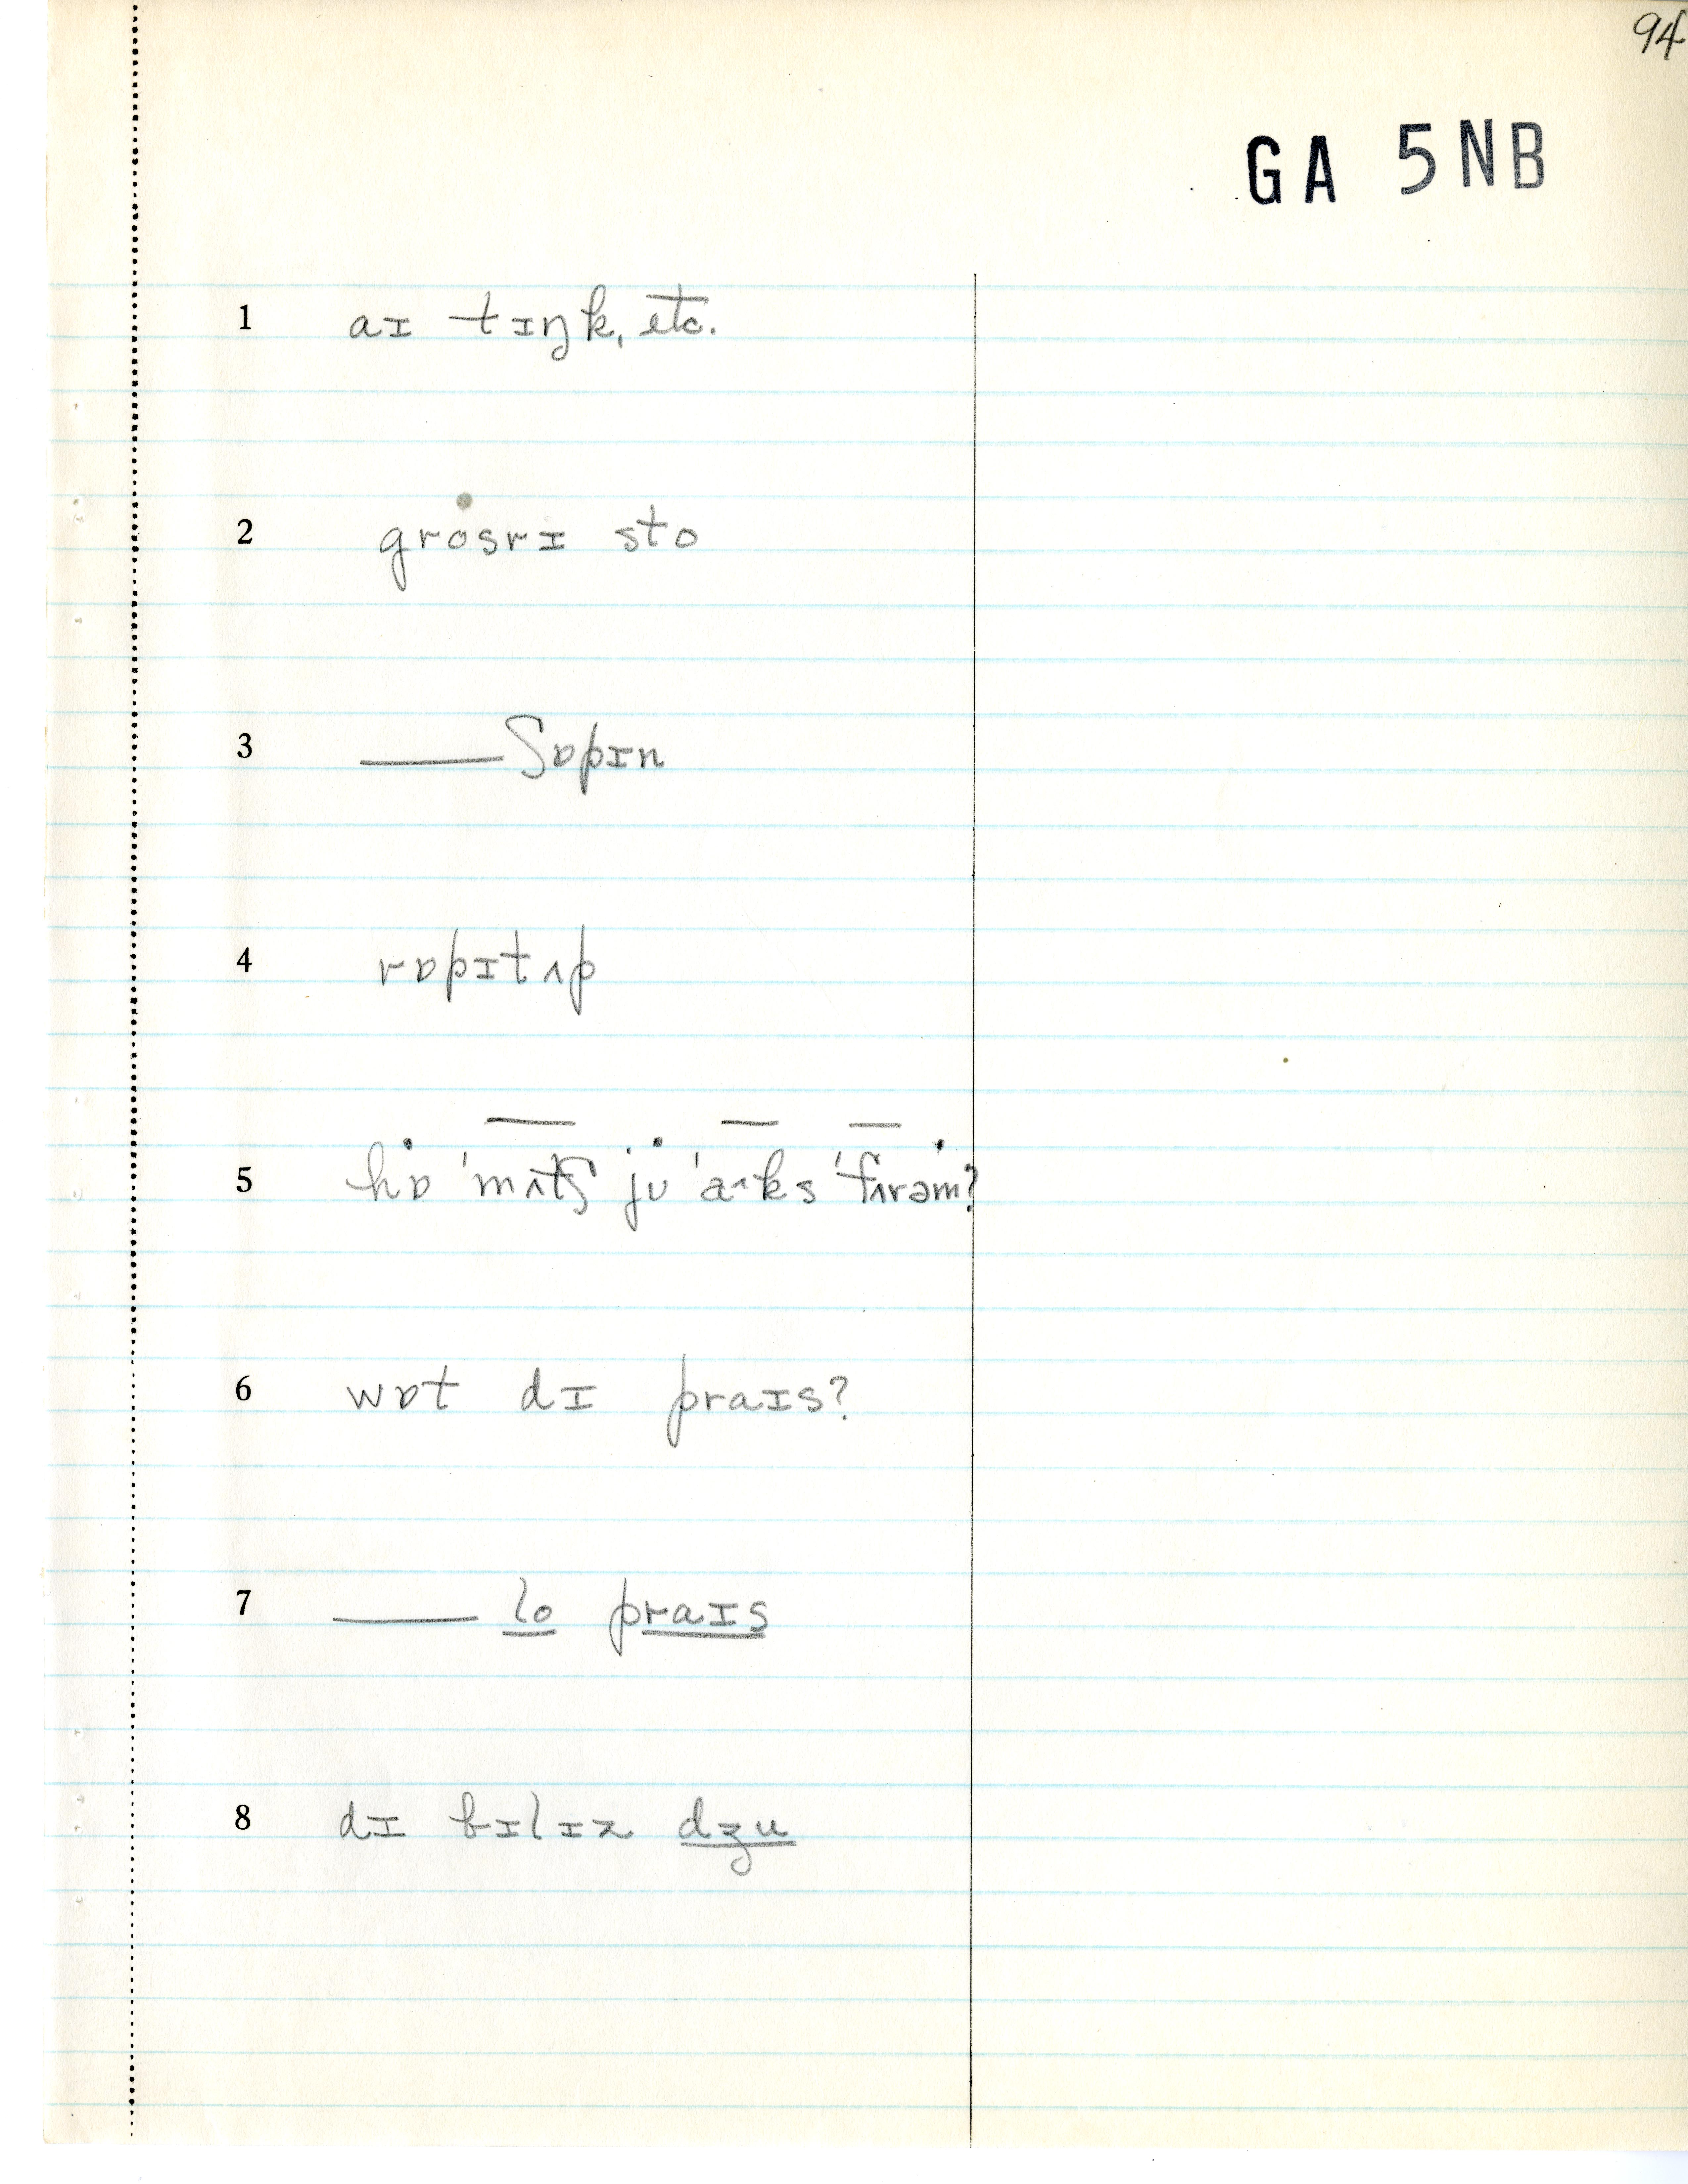 94
GA 5NB
1 aɪ tɪŋk, etc.
2 grosrɪ sto
3 ——— ʃɒpɪn
4 rɒpɪtʌp
5 hɒ 'mʌtʃ jʊ 'aˑks 'fʌrəm?
6 wɒt dɪ praɪs?
7 ——— lo praɪs
8 dɪ bɪlɪz dʒu